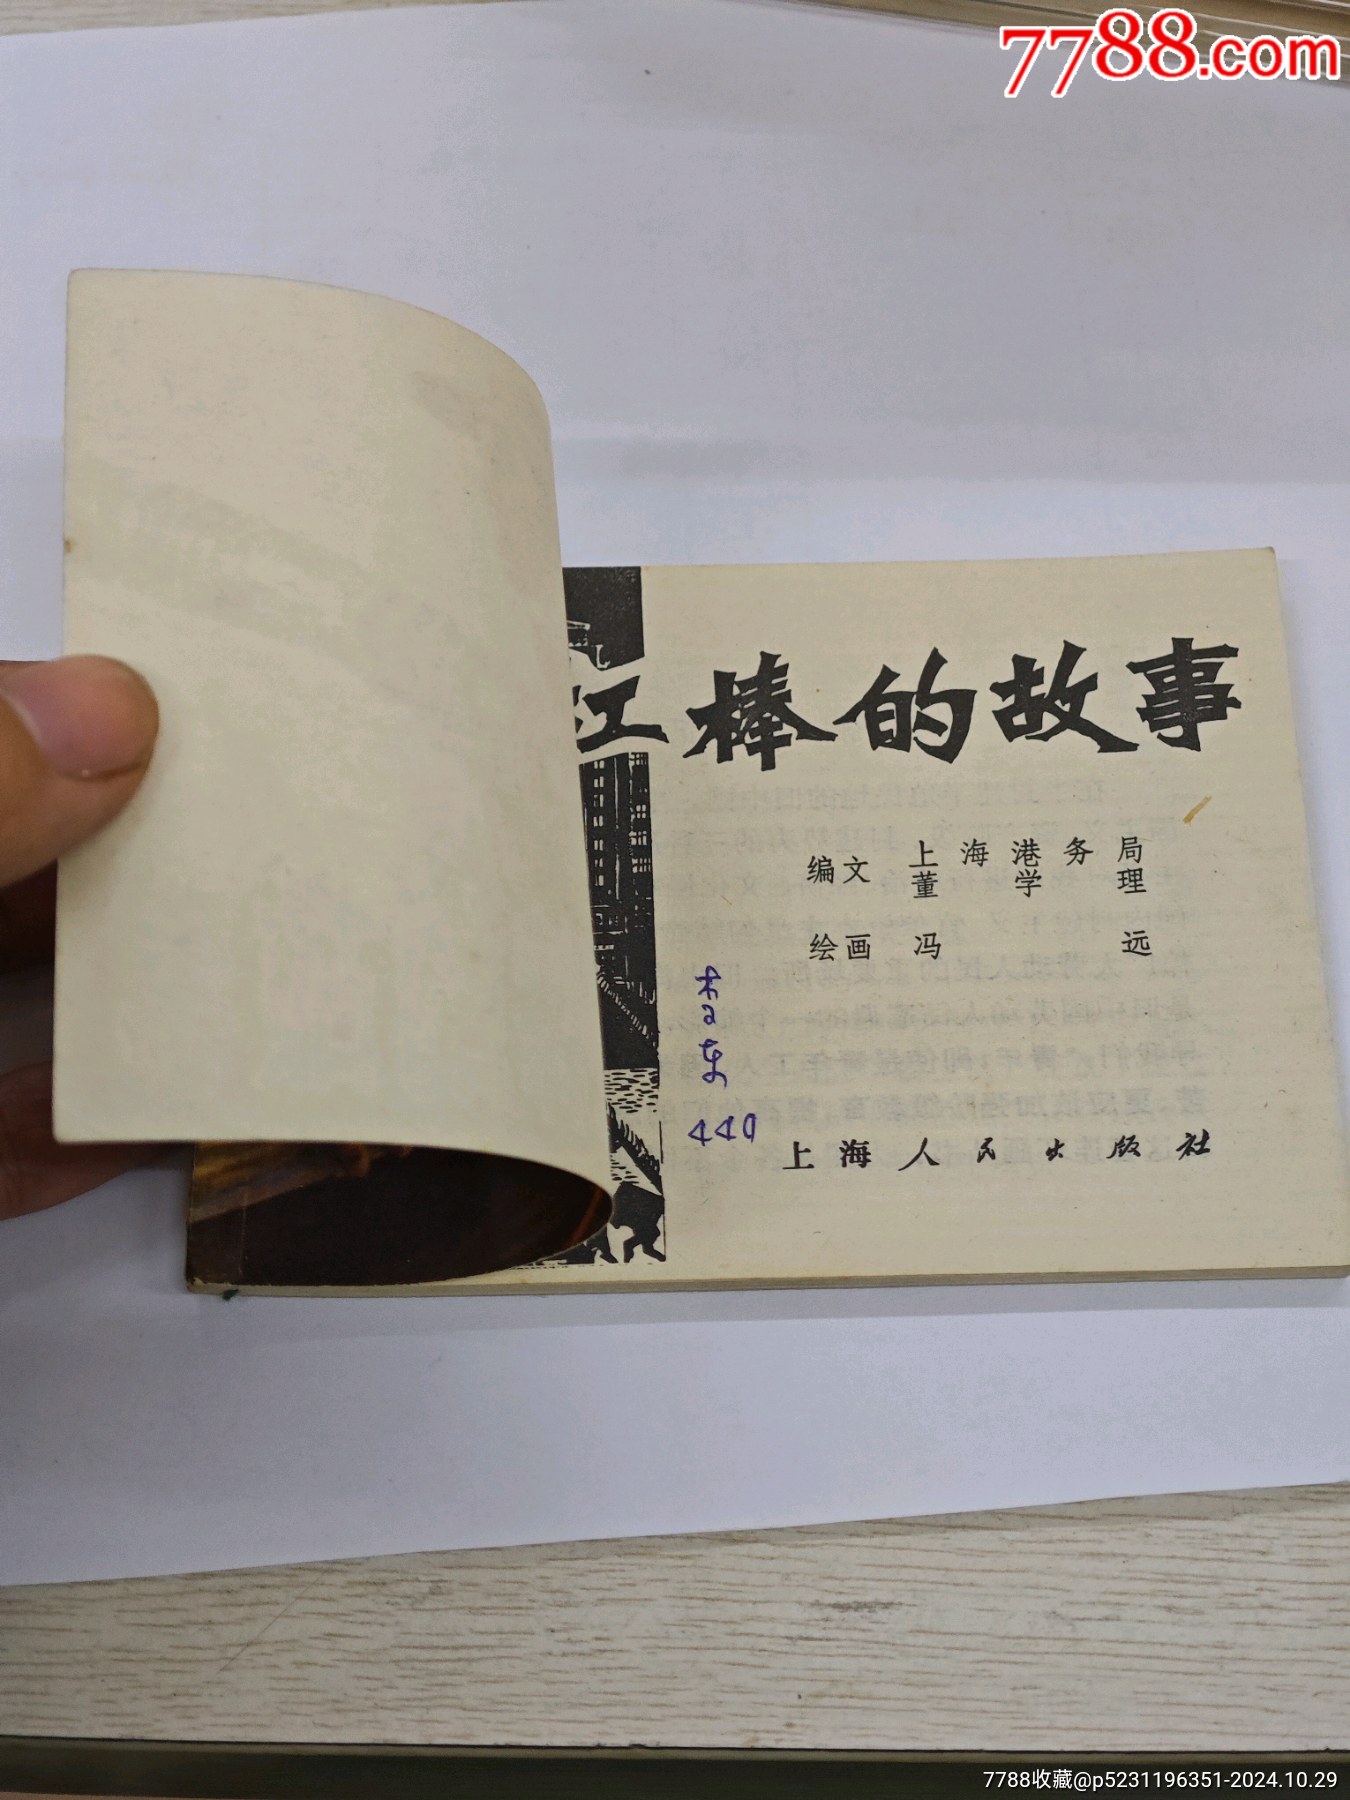 7788.com
红棒的故事
编文 上海港务局
董学理
绘画 冯远
李东
440
上海人民出版社
7788收藏@p5231196351-2024.10.29